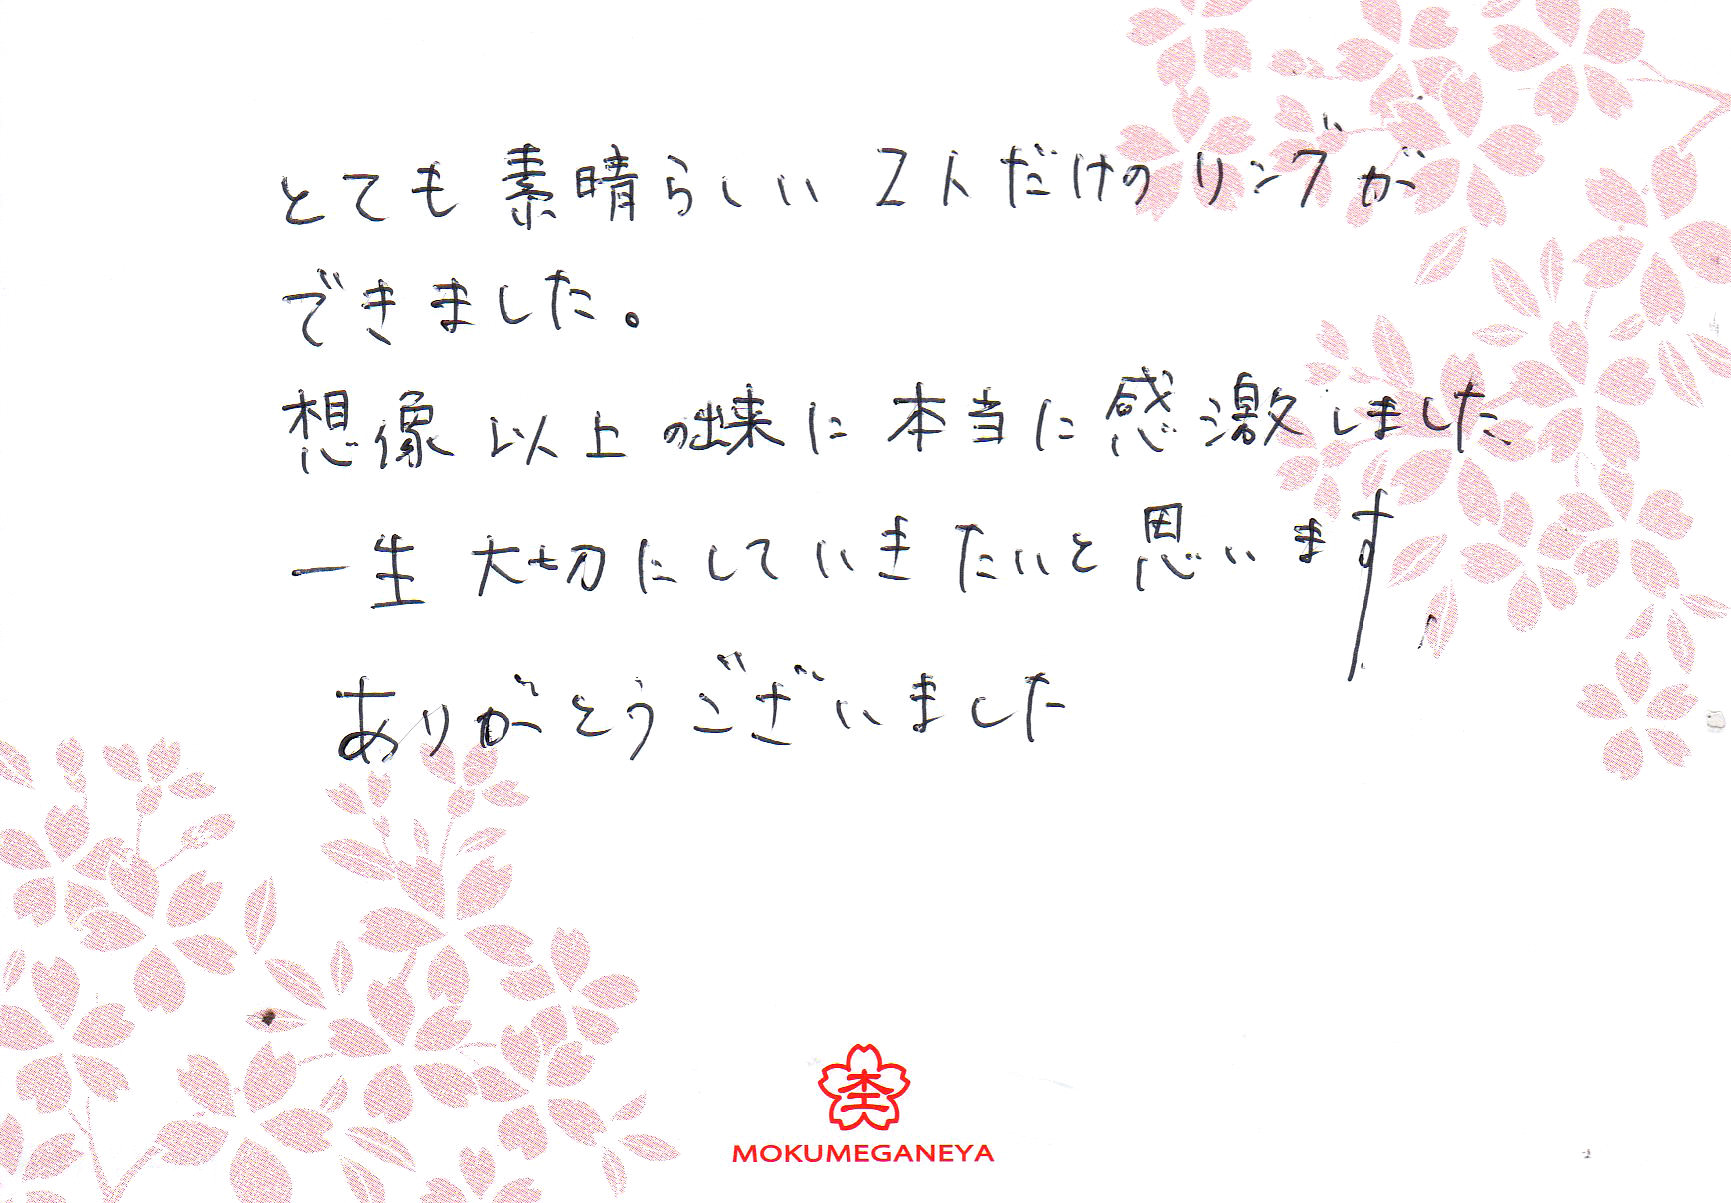 とても素晴らしい2人だけのリングが
できました。
想像以上の出来に本当に感激しました。
一生大切にしていきたいと思います。
ありがとうございました
MOKUMEGANEYA